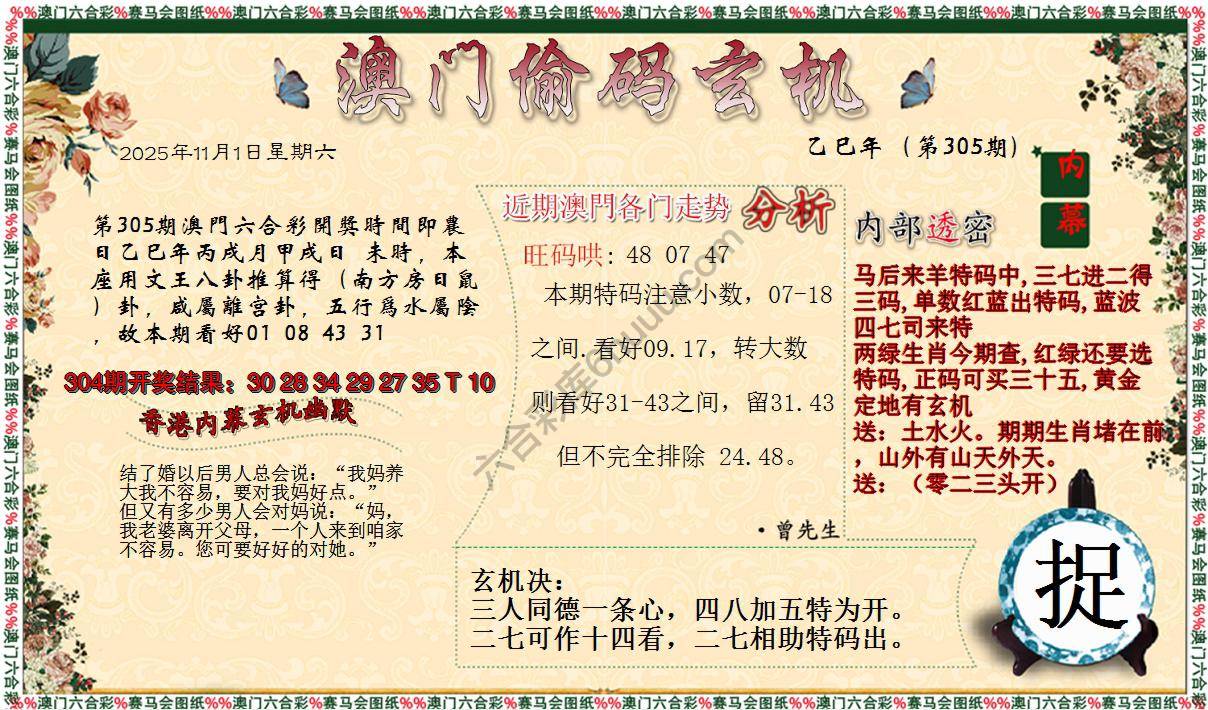 %%澳门六合彩%赛马会图纸%%澳门六合彩%赛马会图纸%%澳门六合彩%赛马会图纸%%澳门六合彩%赛马会图纸%%澳门六合彩%赛马会图纸%%澳门六合彩%赛马会图纸%%澳门六合彩%赛马会图纸%%
澳门偷码玄机
2025年11月1日星期六
乙巳年（第305期）
内幕
第305期澳門六合彩開獎時間即農
日乙巳年丙戌月甲戌日 未時，本
座用文王八卦推算得（南方房日鼠
）卦，咸屬離宫卦，五行爲水屬陰
，故本期看好01 08 43 31
304期开奖结果：30 28 34 29 27 35 T 10
香港内幕玄机幽默
结了婚以后男人总会说：“我妈养
大我不容易，要对我妈好点。”
但又有多少男人会对妈说：“妈，
我老婆离开父母，一个人来到咱家
不容易。您可要好好的对她。”
近期澳門各门走势 分析
旺码哄: 48 07 47
本期特码注意小数，07-18
之间.看好09.17，转大数
则看好31-43之间，留31.43
但不完全排除 24.48。
·曾先生
内部透密
马后来羊特码中,三七进二得
三码,单数红蓝出特码,蓝波
四七司来特
两绿生肖今期查,红绿还要选
特码,正码可买三十五,黄金
定地有玄机
送：土水火。期期生肖堵在前
，山外有山天外天。
送：（零二三头开）
玄机决：
三人同德一条心，四八加五特为开。
二七可作十四看，二七相助特码出。
捉
%%澳门六合彩%赛马会图纸%%澳门六合彩%赛马会图纸%%澳门六合彩%赛马会图纸%%澳门六合彩%赛马会图纸%%澳门六合彩%赛马会图纸%%澳门六合彩%赛马会图纸%%澳门六合彩%赛马会图纸%%